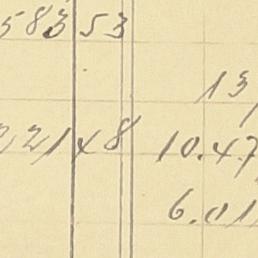 583 53
13
21 48 10.47
6.01